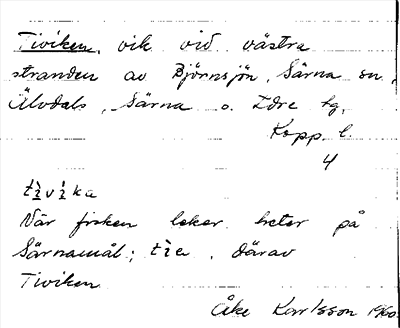 Tiviken, vik vid västra
stranden av Björnsjön, Särna sn,
Älvdals, Särna o. Idre tg,
Kopp. l.
4
tìvìka
När fisken leker heter på
Särnamål; tìa, därav
Tiviken
Åke Karlsson 1960